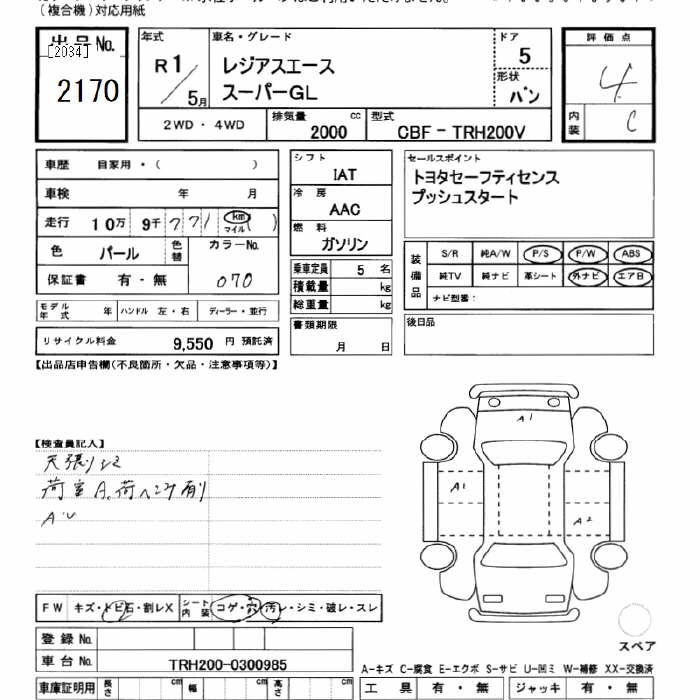 (複合機)対応用紙
出品No.
[2034]
2170
年式
R1／5月
車名・グレード
レジアスエース
スーパーGL
ドア
5
形状
バン
2WD・4WD
排気量 2000 cc
型式 CBF-TRH200V
評価点
4
内装 C
車歴 自家用・( )
車検 年 月
走行 10万 9千 771 km マイル ( )
色 パール 色替 カラーNo. 070
保証書 有・無
モデル年式 年 ハンドル 左・右 ディーラー・並行
リサイクル料金 9,550 円 預託済
シフト
IAT
冷房
AAC
燃料
ガソリン
乗車定員 5 名
積載量 kg
総重量 kg
書類期限
月 日
セールスポイント
トヨタセーフティセンス
プッシュスタート
装備品
S/R 純A/W P/S P/W ABS
純TV 純ナビ 革シート 外ナビ エアB
ナビ型番:
後日品
【出品店申告欄(不良箇所・欠品・注意事項等)】
【検査員記入】
天張りシミ
荷室A、荷ヘコ
A1
A1
A2
スペア
FW キズ・トビ石・割レX シート内装 コゲ・穴・汚レ・シミ・破レ・スレ
登録No.
車台No. TRH200-0300985
A-キズ C-腐食 E-エクボ S-サビ U-凹ミ W-補修 XX-交換済
車庫証明用 長さ cm 幅 cm 高さ cm
工具 有・無 ジャッキ 有・無